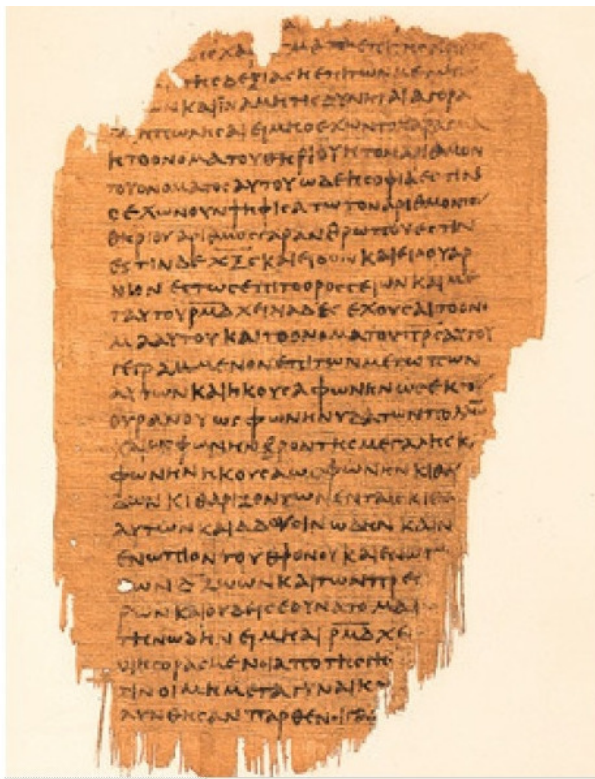 ΤΗϹΔΕΞΙΑϹΗΕΠΙΤΩΝΜΕΤΩ
ΩΝΚΑΙΙΝΑΜΗΤΙϹΔΥΝΗΤΑΙΑΓΟΡΑ
ΗΠΩΛΗϹΑΙΕΙΜΗΟΕΧΩΝΤΟΧΑΡΑΓΜΑ
ΗΤΟΟΝΟΜΑΤΟΥΘΗΡΙΟΥΗΤΟΝΑΡΙΘΜΟΝ
ΤΟΥΟΝΟΜΑΤΟϹΑΥΤΟΥΩΔΕΗϹΟΦΙΑΕϹΤΙΝ
ΕΧΩΝΟΥΝΨΗΦΙϹΑΤΩΤΟΝΑΡΙΘΜΟΝΤΟΥ
ΘΗΡΙΟΥΑΡΙΘΜΟϹΓΑΡΑΝΘΡΩΠΟΥΕϹΤΙΝ
ΕϹΤΙΝΔΕΧ̅Ξ̅Ϲ̅ΚΑΙΕΙΔΟΝΚΑΙΕΙΔΟΥΑΡ
ΝΙΟΝΕϹΤΩϹΕΠΙΤΟΟΡΟϹϹΕΙΩΝΚΑΙΜΕ
ΤΑΥΤΟΥΡ̅Μ̅Δ̅ΧΕΙΛΙΑΔΕϹΕΧΟΥϹΑΙΤΟΟΝΟ
ΜΑΑΥΤΟΥΚΑΙΤΟΟΝΟΜΑΤΟΥΠ̅Ρ̅Ϲ̅ΑΥΤΟΥ
ΓΕΓΡΑΜΜΕΝΟΝΕΠΙΤΩΝΜΕΤΩΠΩΝ
ΑΥΤΩΝΚΑΙΗΚΟΥϹΑΦΩΝΗΝΩϹΕΚΤΟΥ
ΟΥΡΑΝΟΥΩϹΦΩΝΗΝΥΔΑΤΩΝΠΟΛΛΩ
ΚΑΙΩϹΦΩΝΗΝΒΡΟΝΤΗϹΜΕΓΑΛΗϹΚ
ΦΩΝΗΝΗΚΟΥϹΑΩϹΦΩΝΗΝΚΙΘΑ
ΔΩΝΚΙΘΑΡΙΖΟΝΤΩΝΕΝΤΑΙϹΚΙΘΑ
ΑΥΤΩΝΚΑΙΑΔΟΥϹΙΝΩΔΗΝΚΑΙΝ
ΕΝΩΠΙΟΝΤΟΥΘΡΟΝΟΥΚΑΙΕΝΩΠ
ΤΩΝΔ̅ΖΩΩΝΚΑΙΤΩΝΠΡΕϹ
ΡΩΝΚΑΙΟΥΔΕΙϹΕΔΥΝΑΤΟΜΑΘ
ΤΗΝΩΔΗΝΕΙΜΗΑΙΡ̅Μ̅Δ̅ΧΕΙ
ΟΙΗΓΟΡΑϹΜΕΝΟΙΑΠΟΤΗϹΓΗϹ
ΤΙΝΟΙΜΗΜΕΤΑΓΥΝΑΙΚ
ΛΥΝΘΗϹΑΝΠΑΡΘΕΝΟΙΓΑΡ